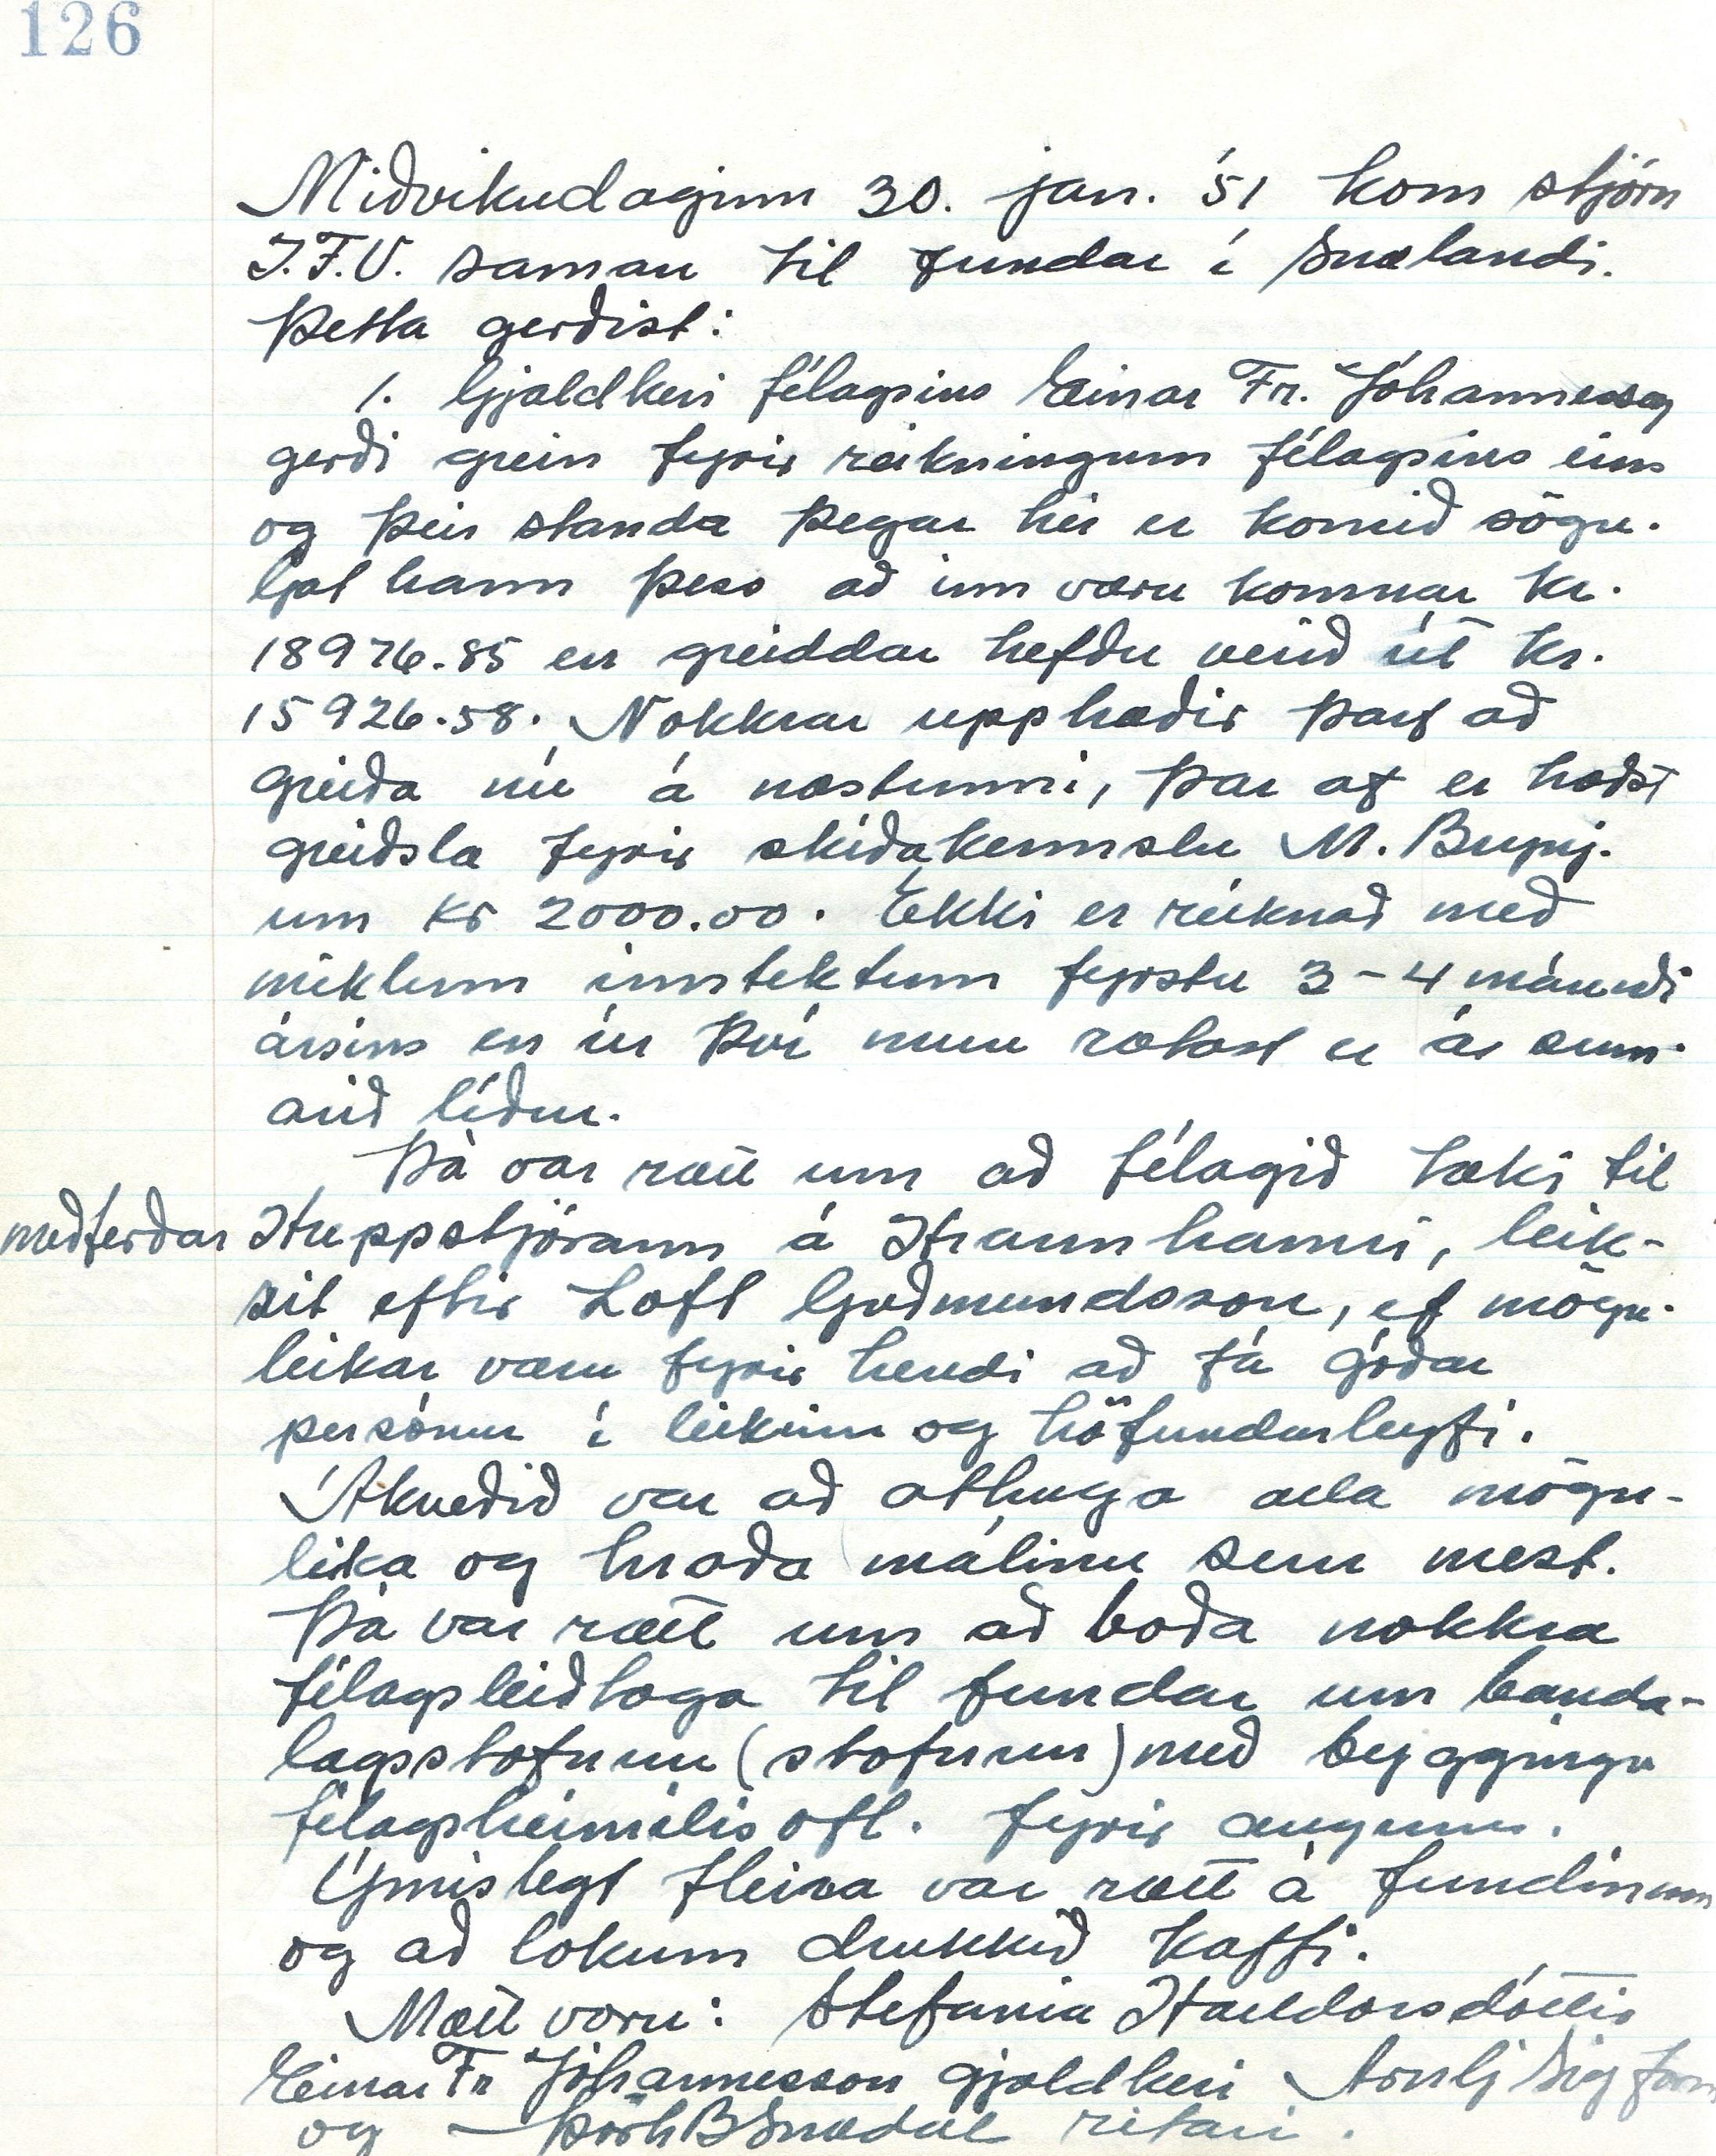 126
Miðvikudaginn 30. jan. '51 kom stjórn
I.F.V. saman til fundar í Snælandi.
Þetta gerðist:
1. Gjaldkeri félagsins Einar Fr. Jóhannesson
gerði grein fyrir reikningum félagsins eins
og þeir standa þegar hér er komið sögu.
Gat hann þess að inn væru komnar kr.
18976.85 en greiddar hefðu verið út kr.
15926.58. Nokkrar upphæðir þarf að
greiða nú á næstunni, þar af er hæðst
greiðsla fyrir skíðakennslu M. Brynj.
um kr 2000.00. Ekki er reiknað með
miklum inntektum fyrstu 3-4 mánuði
ársins en úr því mun rætast er á sum-
arið líður.
Þá var rætt um að félagið tæki til
meðferðar Hreppstjórann á Hraunhamri, leik-
rit eftir Loft Guðmundsson, ef mögu-
leikar væru fyrir hendi að fá góðar
persónur í leikinn og höfundarleyfi.
Ákveðið var að athuga alla mögu-
leika og hraða málinu sem mest.
Þá var rætt um að boða nokkra
félagsleiðtoga til fundar um banda-
lagsstofnun (stofnun) með byggingu
félagsheimilis ofl. fyrir augum.
Ýmislegt fleira var rætt á fundinum
og að lokum drukkið kaffi.
Mætt voru: Stefanía Halldórsdóttir
Einar Fr Jóhannesson gjaldkeri Arnlj Sig form
og Þórh B Snædal ritari.